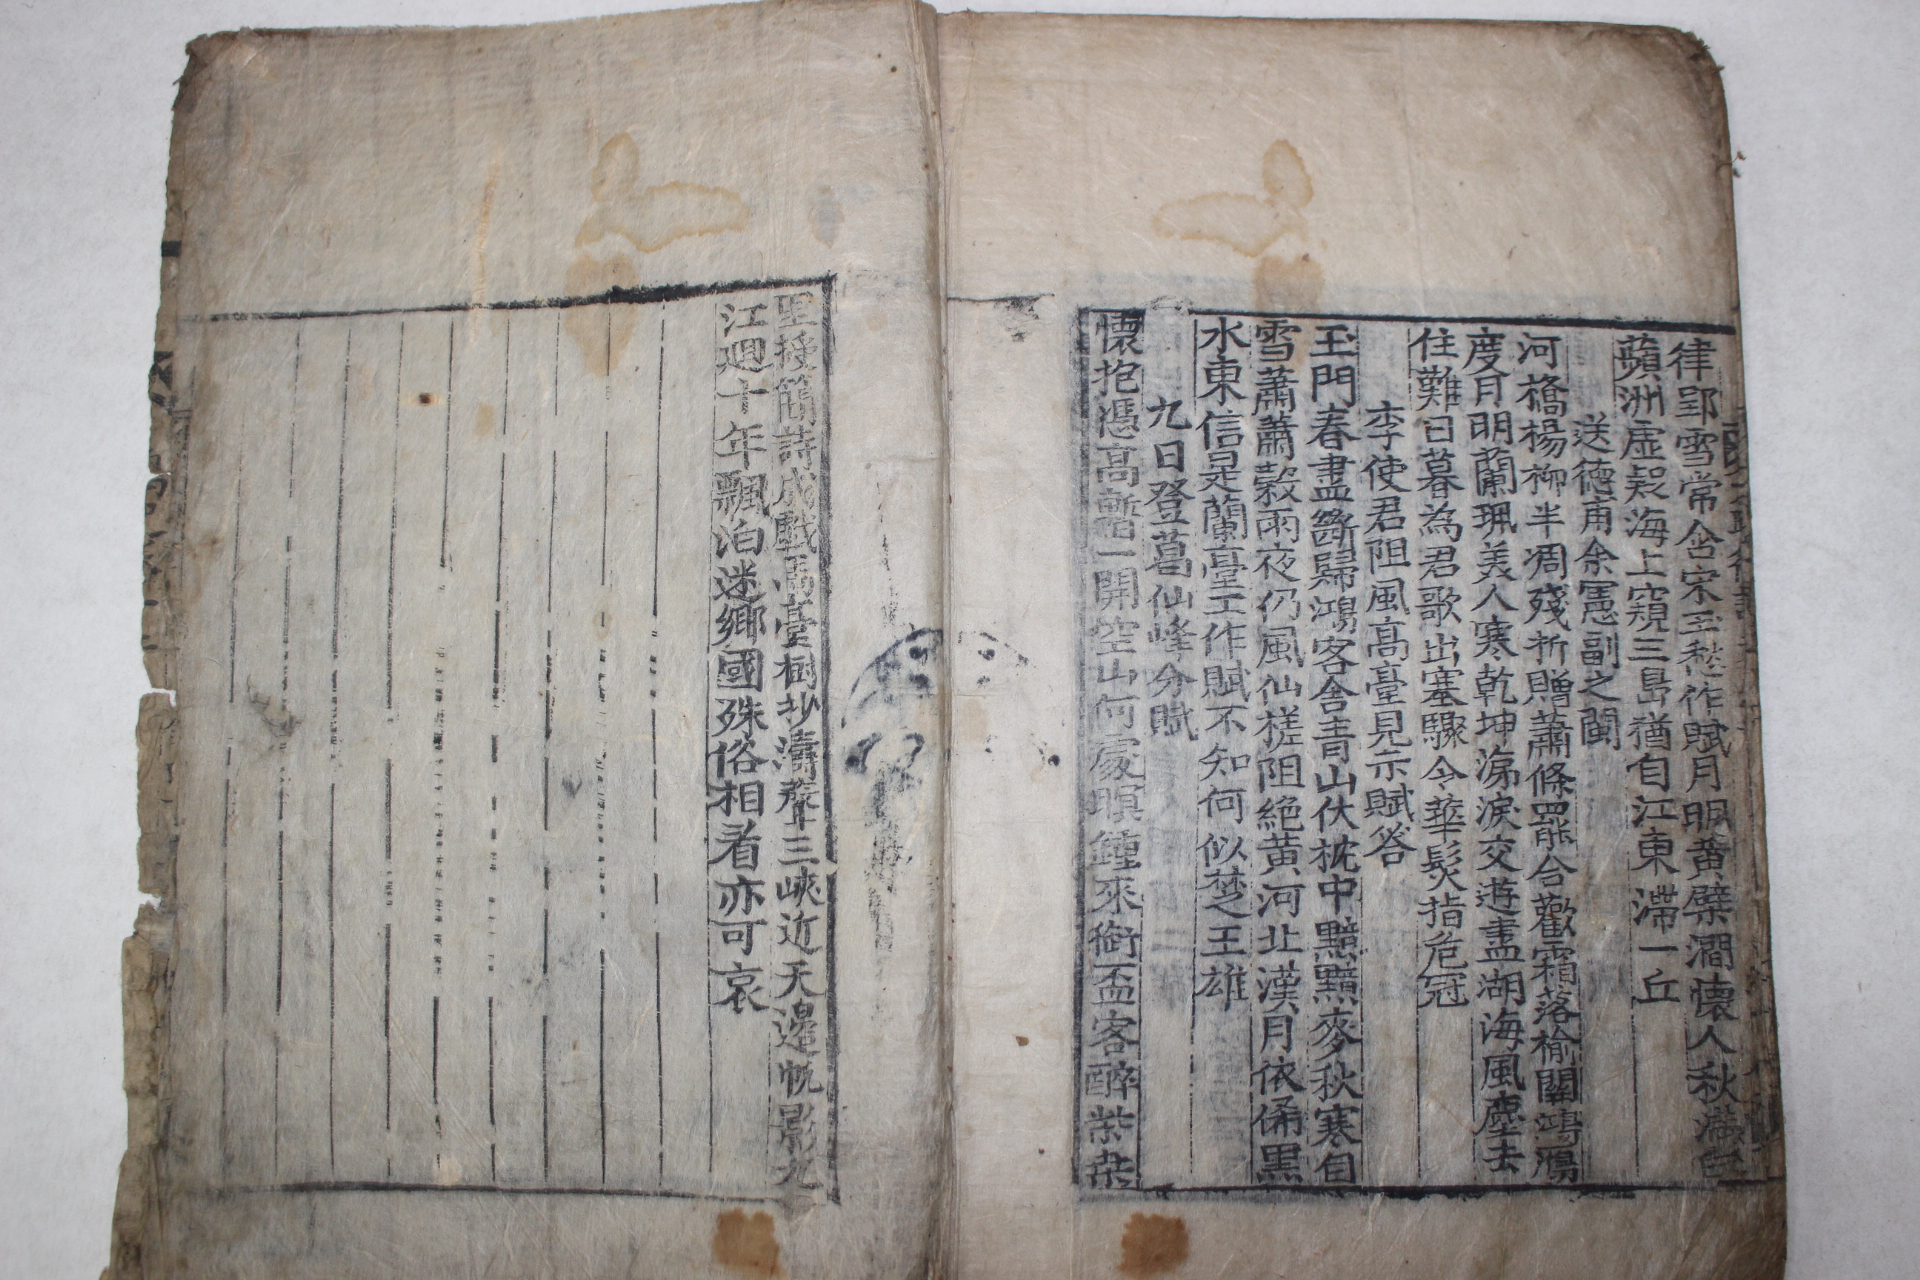 律郢雪常含宋玉愁作賦月明黃檗澗懷人秋滿白
蘋洲虛疑海上窺三島猶自江東滯一丘
送德甫余憲副之閩
河橋楊柳半凋殘折贈蕭條罷合歡霜落榆關鴻鴈
度月明蘭珮美人寒乾坤涕淚交遊盡湖海風塵去
住難日暮為君歌出塞驟令華髮指危冠
李使君阻風高臺見示賦答
玉門春盡斷歸鴻客舍青山伏枕中黯黯麥秋寒自
雪蕭蕭穀雨夜仍風仙槎阻絕黃河北漢月依俙黑
水東信是蘭臺工作賦不知何似楚王雄
九日登葛仙峰分賦
懷抱憑高暫一開空山何處暝鐘來銜盃客醉茱萸
里授簡詩成戲馬臺樹抄濤聲三峽近天邊帆影九
江迴十年飄泊迷鄉國殊俗相看亦可哀